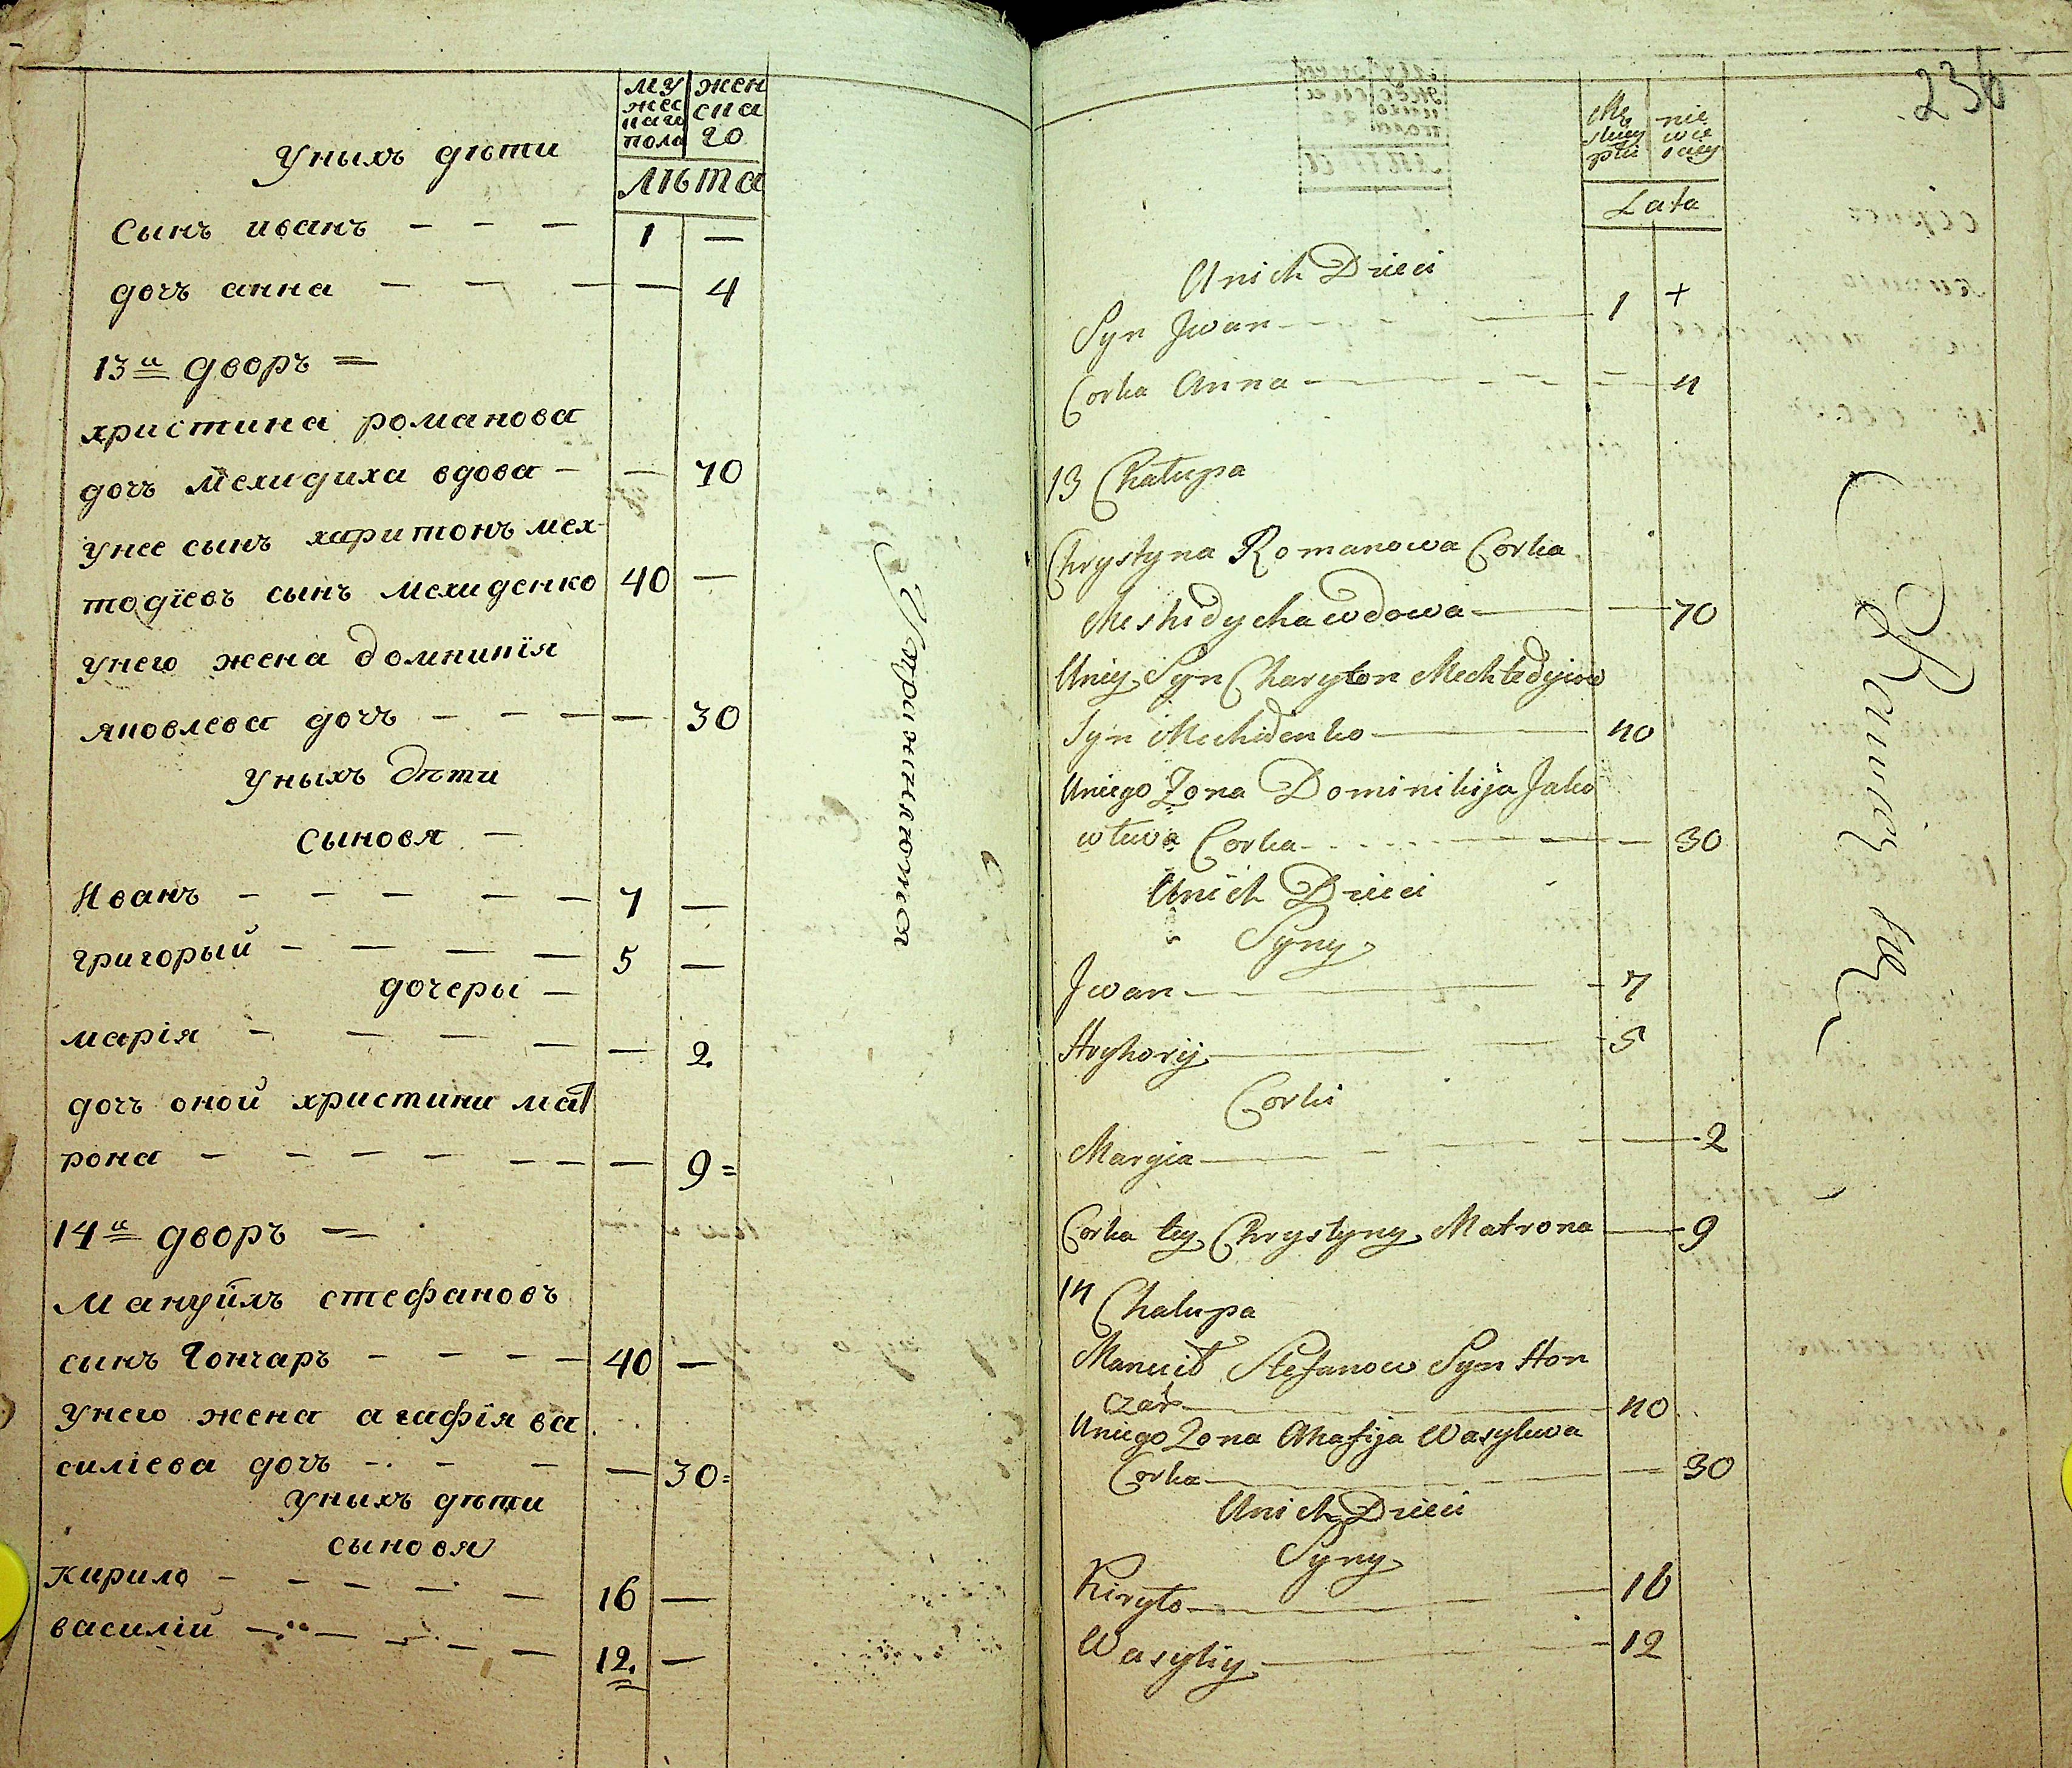 му жес каго пола
жен ска го
Унихъ дѣти
лѣта
сынъ иванъ — — — 1 —
дочъ анна — — — — 4
13й дворъ =
христина романова
дочъ мехидиха вдова — — 70
унее сынъ харитонъ мех-
тодіевъ сынъ мехиденко 40 —
унего жена домникія
яковлева дочъ — — — — 30
Унихъ дѣти
сыновя —
Иванъ — — — — — 7 —
григорый — — — — 5 —
дочеры —
марія — — — — — 2
дочъ оной христини мат
рона — — — — — — — 9=
14й дворъ =
мануйлъ стефановъ
сынъ Гончаръ — — — — 40 —
унего жена агафія ва
силіева дочъ — — — — 30=
Унихъ дѣти
сыновя
Кирило — — — — — 16 —
василій — — — — — 12. —
236
Lata
Unich Dzieci
Syn Jwan 1 +
Corka Anna 4
13 Chałupa
Chrystyna Romanowa Corka
Meshidycha wdowa 70
Uniey Syn Charyton Mechtedyiow
Syn Mechidenko 40
Uniego Zona Dominikija Jako
wlewa Corka 30
Unich Dzieci
Syny
Jwan 7
Hryhorij 5
Corki
Maryia 2
Corka tey Chrystyny Matrona 9
14 Chalupa
Manuił Stefanow Syn Hon
czar 40
Uniego Zona Ahafija Wasylewa
Corka 30
Unich Dzieci
Syny
Kiryło 16
Wasyliy 12